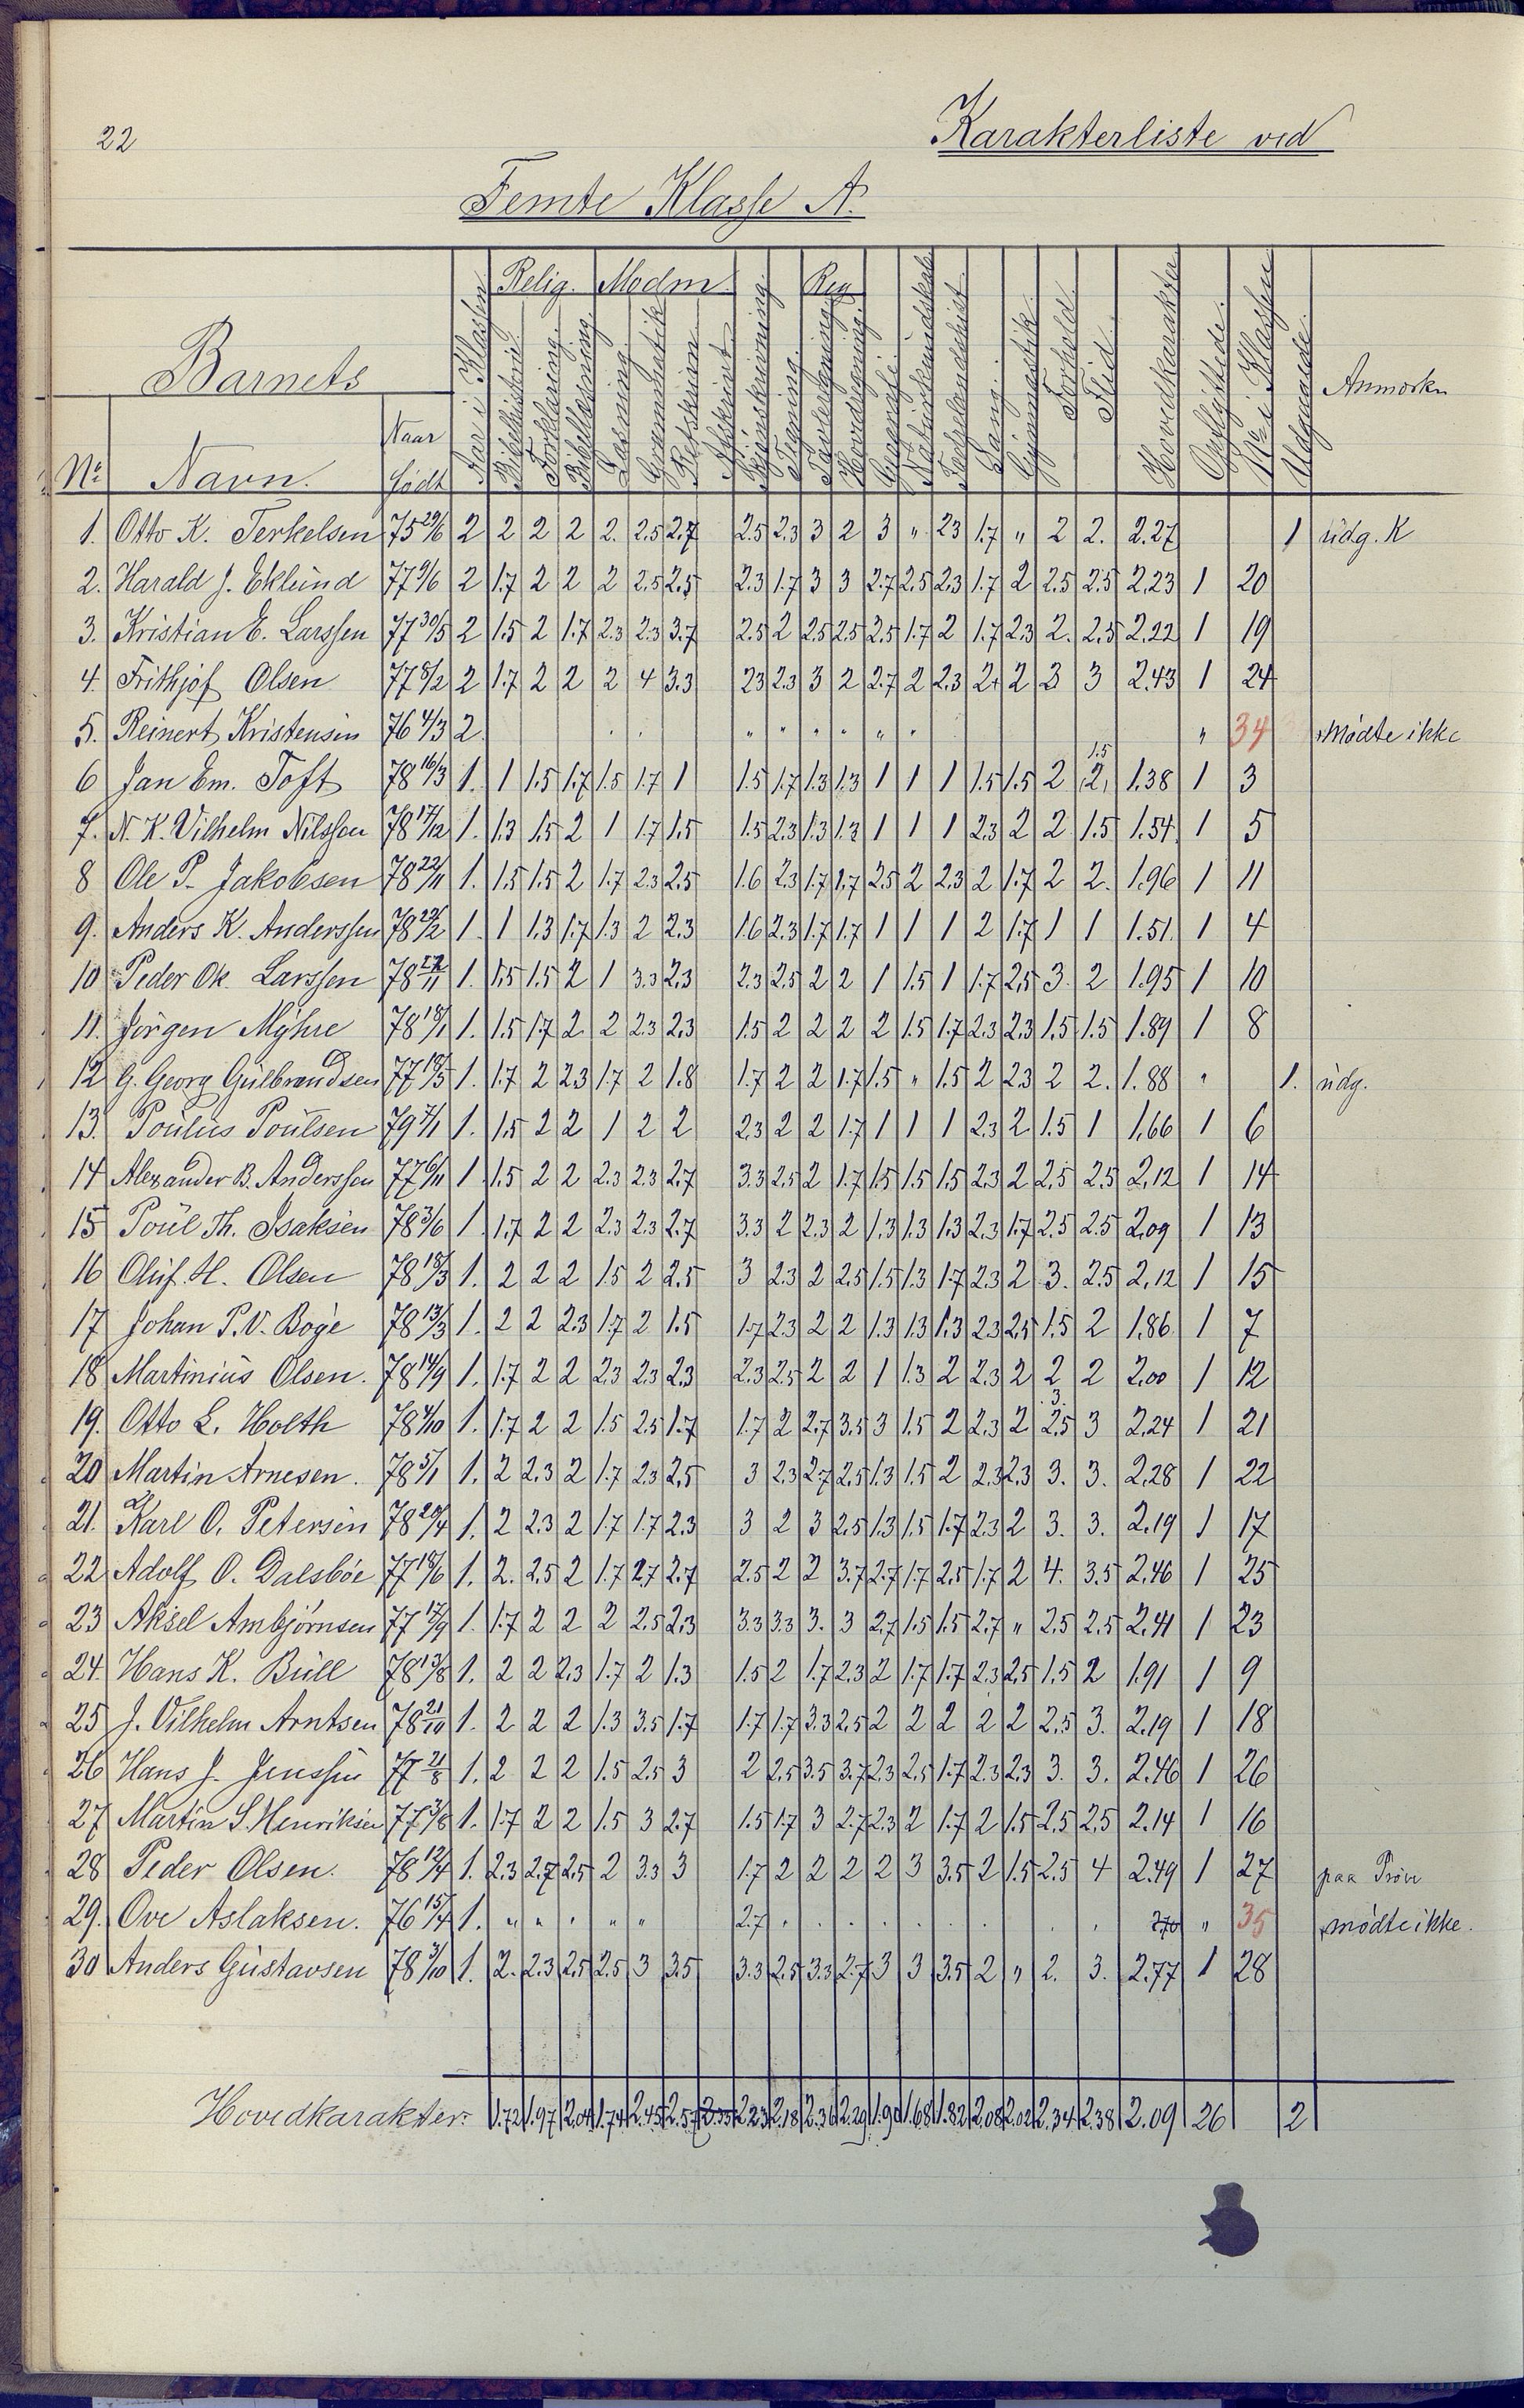 22
Karakterliste ved
Femte Klasse A.
Relig. Modm. Reg
Barnets
Aar i Klassen Bibelhistorie Forklaring Bibellæsning Læsning Grammatik Retskrivn Afskrivt Skjönskrivning Tegning. Tavleregning Hovedregning. Geografi. Naturkundskab Fædrelandshist. Sang. Gymnastik. Forhold. Flid. Hovedkarakter Opflyttede. No i Klassen Udgaaede. Anmærkn
No Navn. Naar födt
1. Otto K. Terkelsen 75 29/6 2 2 2 2 2. 2.5 2.7 2.5 2.3 3 2 3 " 2.3 1.7 " 2 2. 2.27 1 udg. K
2. Harald J. Eklund 77 9/6 2 1.7 2 2 2 2.5 2.5 2.3 1.7 3 3 2.7 2.5 2.3 1.7 2 2.5 2.5 2.23 1 20
3. Kristian E. Larssen 77 30/5 2 1.5 2 1.7 2.3 2.3 3.7 2.5 2 2.5 2.5 2.5 1.7 2 1.7 2.3 2. 2.5 2.22 1 19
4. Frithjof Olsen 77 8/2 2 1.7 2 2 2 4 3.3 2.3 2.3 3 2 2.7 2 2.3 2+ 2 3 3 2.43 1 24
5. Reinert Kristensen 76 4/3 2. " " " " " " " 34 mødte ikke
6 Jan Em. Toft 78 16/3 1. 1 1.5 1.7 1.5 1.7 1 1.5 1.7 1.3 1.3 1 1 1 1.5 1.5 2 1.5 2, 1.38 1 3
7. N. K. Vilhelm Nilssen 78 17/12 1. 1.3 1.5 2 1 1.7 1.5 1.5 2.3 1.3 1.3 1 1 1 2.3 2 2 1.5 1.54 1 5
8 Ole P. Jakobsen 78 22/11 1. 1.5 1.5 2 1.7 2.3 2.5 1.6 2.3 1.7 1.7 2.5 2 2.3 2 1.7 2 2. 1.96 1 11
9. Anders K. Anderssen 78 22/2 1. 1 1.3 1.7 1.3 2 2.3 1.6 2.3 1.7 1.7 1 1 1 2 1.7 1 1 1.51. 1 4
10 Peder Ok. Larssen 78 27/11 1. 1.5 1.5 2 1 3.3 2.3 2.3 2.5 2 2 1 1.5 1 1.7 2.5 3. 2 1.95 1 10
11. Jörgen Myhre 78 18/1 1. 1.5 1.7 2 2 2.3 2.3 1.5 2 2 2 2 1.5 1.7 2.3 2.3 1.5 1.5 1.89 1 8
12 G. Georg Gulbrandsen 77 18/5 1. 1.7 2 2.3 1.7 2 1.8 1.7 2 2 1.7 1.5 " 1.5 2 2.3 2 2. 1.88 " 1. udg.
13. Poulus Poulsen 79 7/1 1. 1.5 2 2 1 2 2 2.3 2 2 1.7 1 1 1 2.3 2 1.5 1 1.66 1 6
14 Alexander B. Anderssen 77 6/11 1 1.5 2 2 2.3 2.3 2.7 3.3 2.5 2 1.7 1.5 1.5 1.5 2.3 2 2.5 2.5 2.12 1 14
15 Poul Th. Isaksen 78 3/6 1. 1.7 2 2 2.3 2.3 2.7 3.3 2 2.3 2 1.3 1.3 1.3 2.3 1.7 2.5 2.5 2.09 1 13
16 Oluf. H. Olsen 78 18/3 1. 2 2 2 1.5 2 2.5 3 2.3 2 2.5 1.5 1.3 1.7 2.3 2 3. 2.5 2.12 1 15
17 Johan P. V. Boge 78 13/3 1. 2 2 2.3 1.7 2 1.5 1.7 2.3 2 2 1.3 1.3 1.3 2.3 2.5 1.5 2 1.86 1 7
18 Martinius Olsen. 78 14/9 1. 1.7 2 2 2.3 2.3 2.3 2.3 2.5 2 2 1 1.3 2 2.3 2 2 2 2.00 1 12
19. Otto L. Holth 78 4/10 1. 1.7 2 2 1.5 2.5 1.7 1.7 2 2.7 3.5 3 1.5 2 2.3 2 3. 2.5 3 2.24 1 21
20 Martin Arnesen. 78 5/1 1. 2 2.3 2 1.7 2.3 2.5 3 2.3 2.7 2.5 1.3 1.5 2 2.3 2.3 3. 3. 2.28 1 22
21. Karl O. Petersen 78 20/4 1. 2 2.3 2 1.7 1.7 2.3 3 2 3 2.5 1.3 1.5 1.7 2.3 2 3. 3. 2.19 1 17
22 Adolf O. Dalsböe 77 18/6 1. 2. 2.5 2 1.7 2.7 2.7 2.5 2 2 3.7 2.7 1.7 2.5 1.7 2 4. 3.5 2.46 1 25
23 Aksel Ambjörnsen 77 17/9 1. 1.7 2 2 2 2.5 2.3 3.3 3.3 3. 3 2.7 1.5 1.5 2.7 " 2.5 2.5 2.41 1 23
24. Hans K. Bull 78 13/8 1. 2 2 2.3 1.7 2 1.3 1.5 2 1.7 2.3 2 1.7 1.7 2.3 2.5 1.5 2 1.91 1 9
25 J. Vilhelm Arntsen 78 21/10 1. 2 2 2 1.3 3.5 1.7 1.7 1.7 3.3 2.5 2 2 2 2 2 2.5 3. 2.19 1 18
26 Hans J. Jenssen 77 21/8 1. 2 2 2 1.5 2.5 3 2 2.5 3.5 3.7 2.3 2.5 1.7 2.3 2.3 3. 3. 2.46 1 26
27 Martin S. Henriksen 77 3/8 1. 1.7 2 2 1.5 3 2.7 1.5 1.7 3 2.7 2.3 2 1.7 2 1.5 2.5 2.5 2.14 1 16
28 Peder Olsen. 78 12/4 1. 2.3 2.7 2.5 2 3.3 3 1.7 2 2 2 2 3 3.5 2 1.5 2.5 4 2.49 1 27 paa Pröve
29. Ove Aslaksen. 76 15/4 1. " " " " " 2.7 2.70 " 35 mødte ikke.
30 Anders Gustavsen 78 3/10 1. 2. 2.3 2.5 2.5 3 3.5 3.3 2.5 3.3 2.7 3 3 3.5 2 " 2. 3. 2.77 1 28
Hovedkarakter: 1.72 1.97 2.04 1.74 2.45 2.57 2.35 2.23 2.18 2.36 2.29 1.90 1.68 1.82 2.08 2.02 2.34 2.38 2.09 26 2